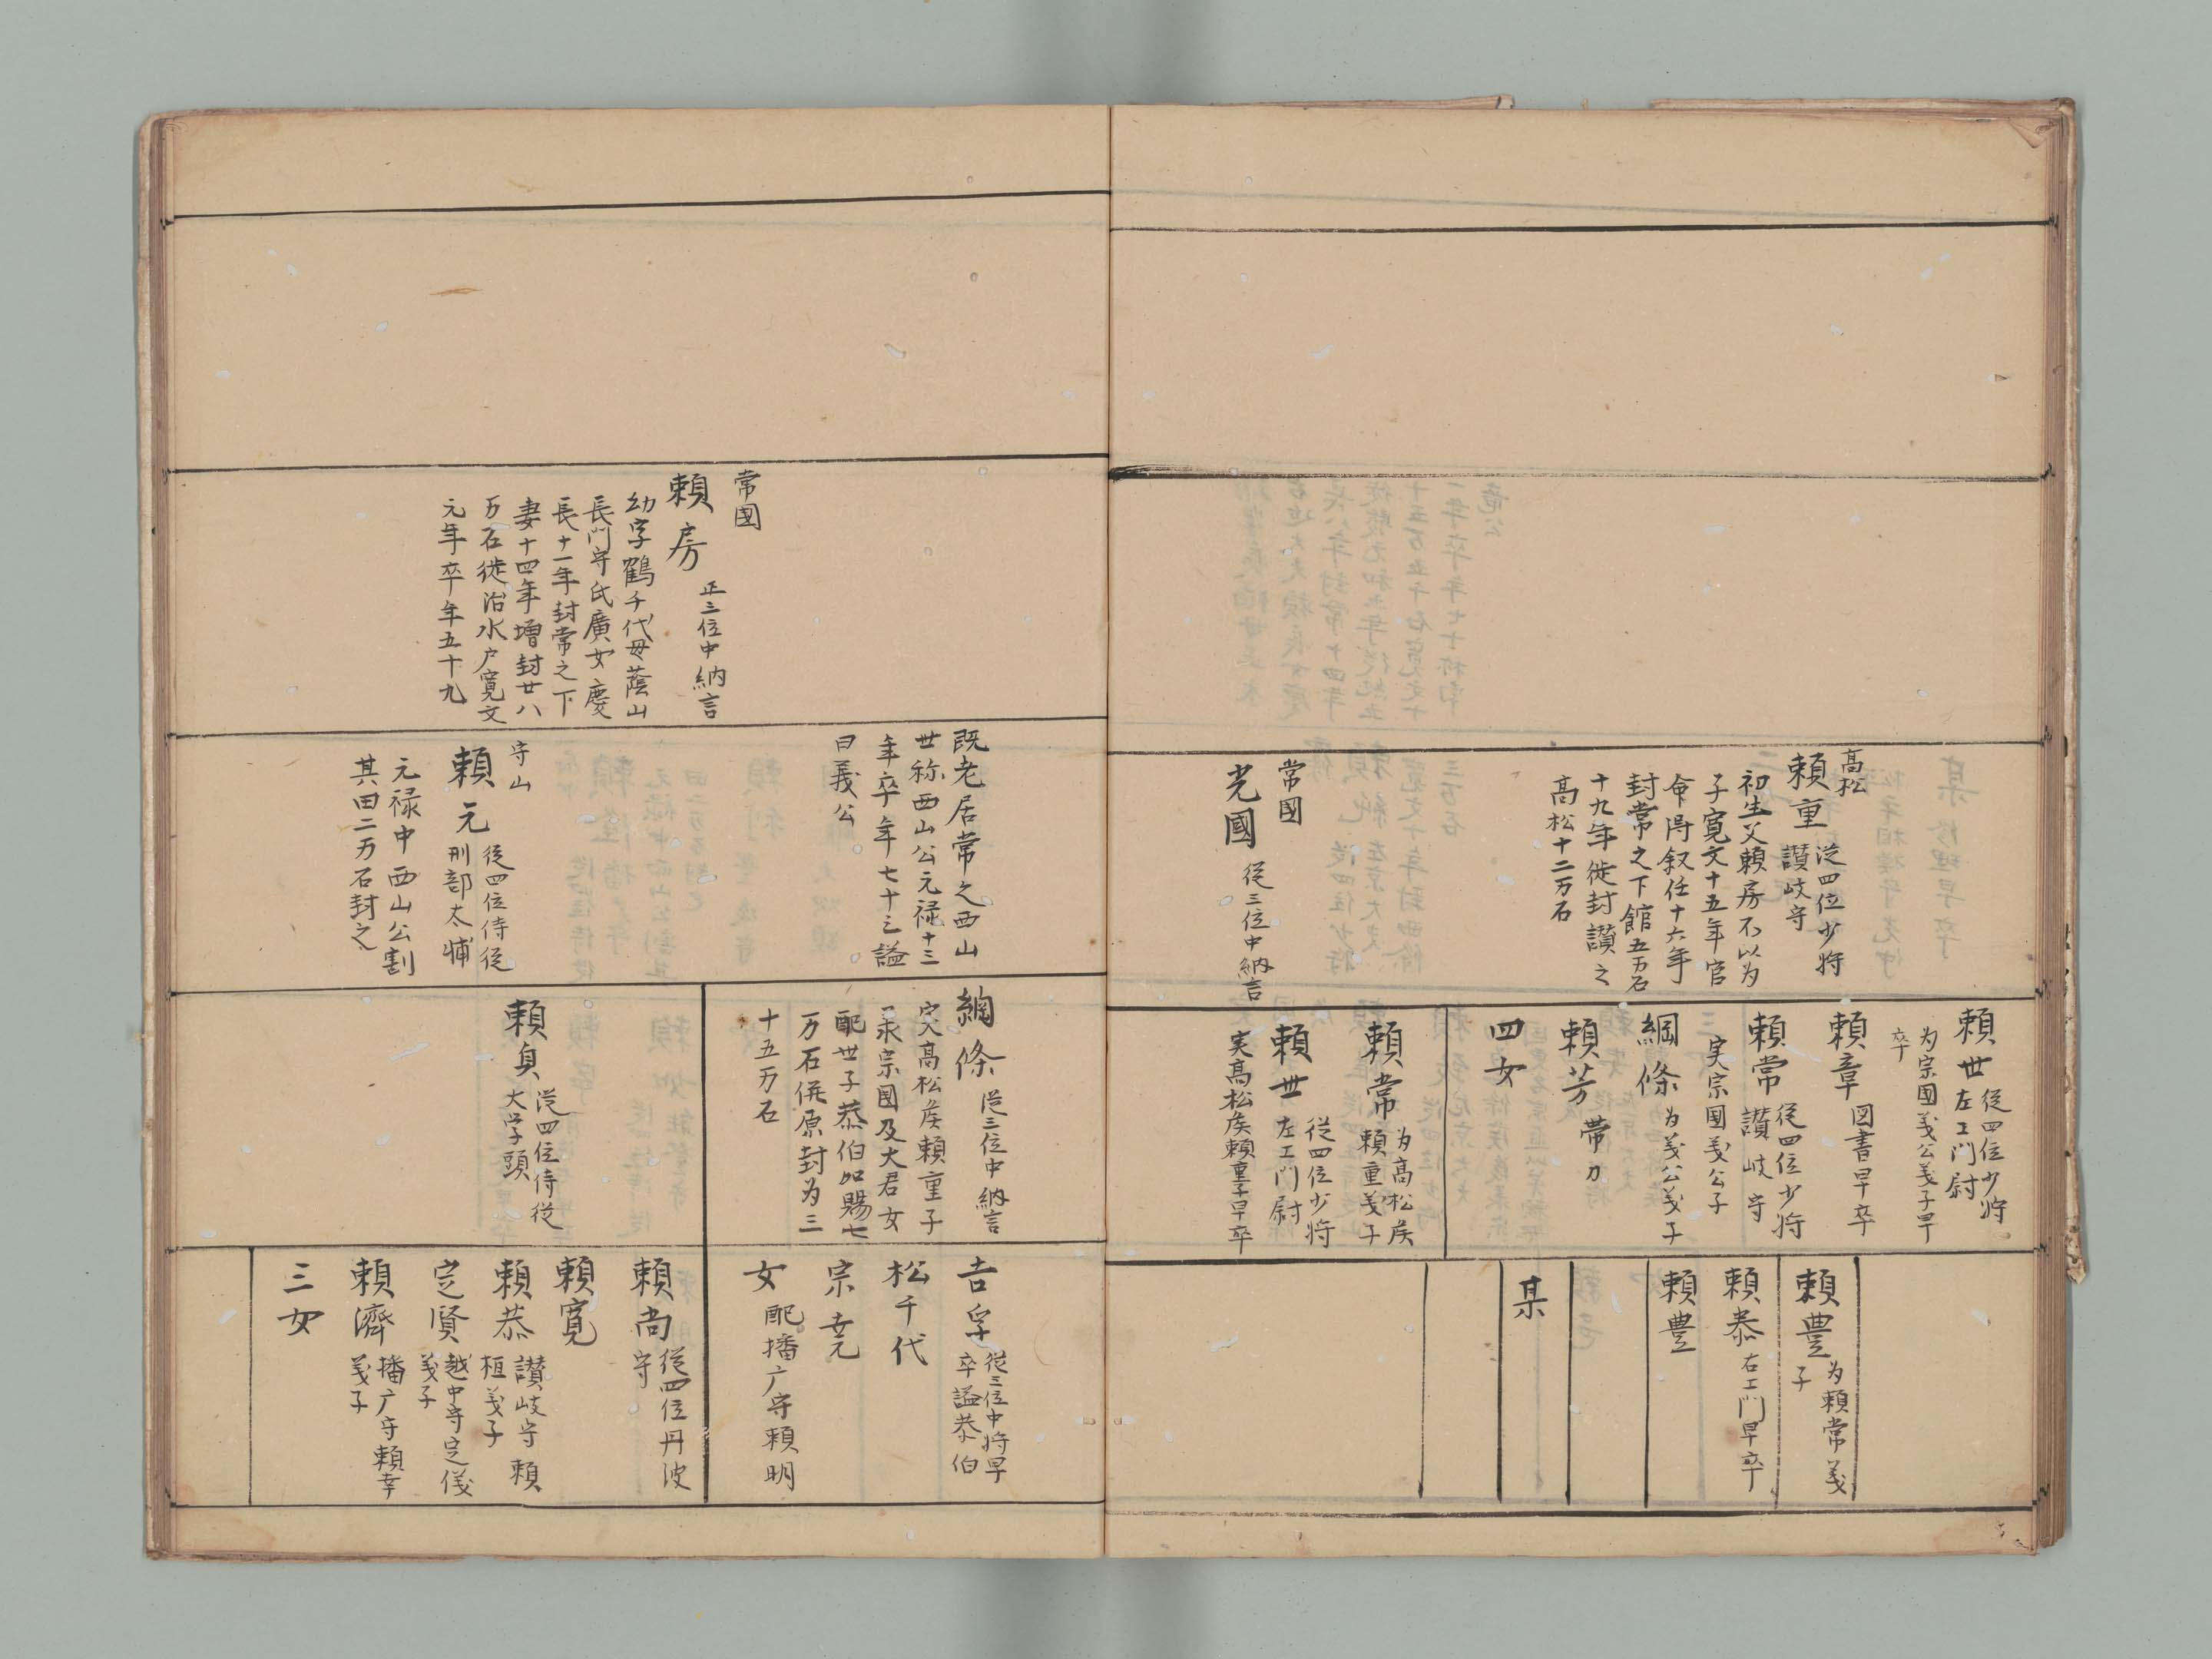 高松
頼重
従四位少将
讃岐守
初生父頼房不以为
子寛文十五年官
命得叙任十六年
封常之下館五万石
十九年徙封讃之
高松十二万石
常國
光國
従三位中納言
頼世
従四位少将
左エ門尉
为宗国義公義子早
卒
頼章
図書早卒
頼常
従四位少将
讃岐守
実宗国義公子
綱條
为義公義子
頼芳
帯刀
四女
頼常
为高松矦
頼重義子
頼世
従四位少将
左エ門尉
実高松矦頼重子早卒
頼豊
为頼常義
子
頼泰
右エ門早卒
頼豊
某
常國
頼房
正三位中納言
幼字鶴千代母蔭山
長門守氏廣女慶
長十一年封常之下
妻十四年増封廿八
万石徙治水戸寛文
元年卒年五十九
既老居常之西山
世称西山公元禄十三
年卒年七十三謚
曰義公
守山
頼元
従四位侍従
刑部太輔
元禄中西山公割
其田二万石封之
綱條
従三位中納言
実高松矦頼重子
承宗国及大君女
配世子恭伯加賜七
万石併原封为三
十五万石
頼貞
従四位侍従
大学頭
吉孚
従三位中将早
卒謚恭伯
松千代
宗尭
女
配播广守頼明
頼尚
従四位丹波
守
頼寛
頼恭
讃岐守頼
桓義子
定賢
越中守定儀
義子
頼濟
播广守頼幸
義子
三女